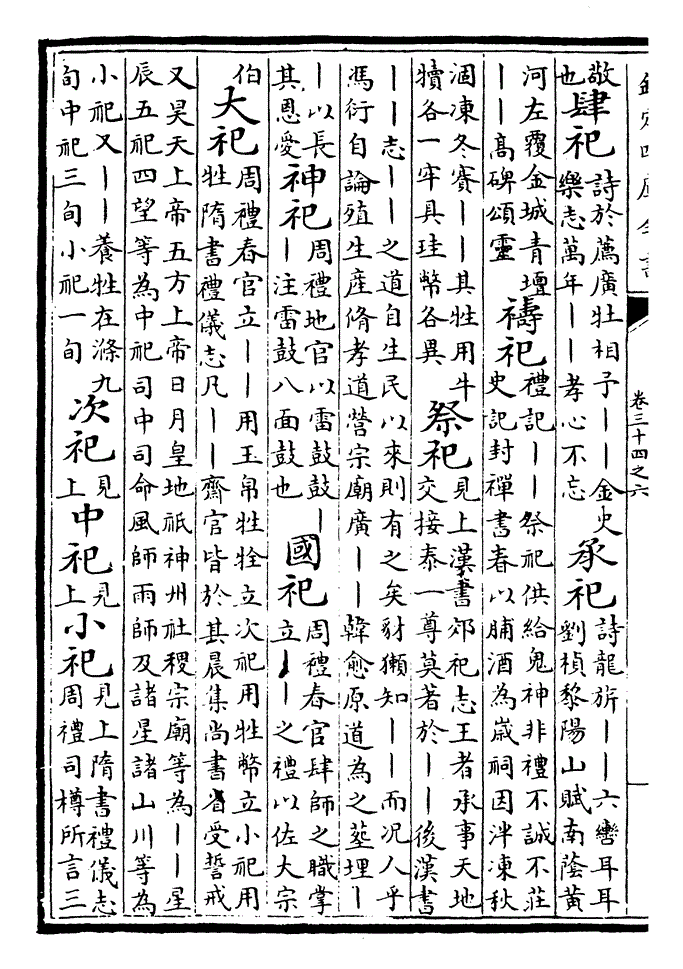 欽定四庫全書
卷三十四之六
敬也肆祀詩於薦廣牡相予丨丨金史樂志萬年丨丨孝心不忘承祀詩龍旂丨丨六轡耳耳劉楨黎陽山賦南蔭黄
河左覆金城青壇丨丨高碑頌靈禱祀禮記丨丨祭祀供給鬼神非禮不誠不莊史記封禪書春以脯酒為歳祠因泮凍秋
涸凍冬賽丨丨其牲用牛犢各一牢具珪幣各異祭祀見上漢書郊祀志王者承事天地交接泰一尊莫著於丨丨後漢書
丨丨志丨丨之道自生民以來則有之矣豺獺知丨丨而况人乎
馮衍自論殖生産脩孝道營宗廟廣丨丨韓愈原道為之塟埋丨
丨以長其恩愛神祀周禮地官以雷鼓鼓丨丨注雷鼓八面鼓也國祀周禮春官肆師之職掌立丨丨之禮以佐大宗
伯大祀周禮春官立丨丨用玉帛牲牷立次祀用牲幣立小祀用牲隋書禮儀志凡丨丨齋官皆於其晨集尚書省受誓戒
又昊天上帝五方上帝日月皇地祇神州社稷宗廟等為丨丨星
辰五祀四望等為中祀司中司命風師雨師及諸星諸山川等為
小祀又丨丨養牲在滌九旬中祀三旬小祀一旬次祀見上中祀見上小祀見上隋書禮儀志周禮司樽所言三